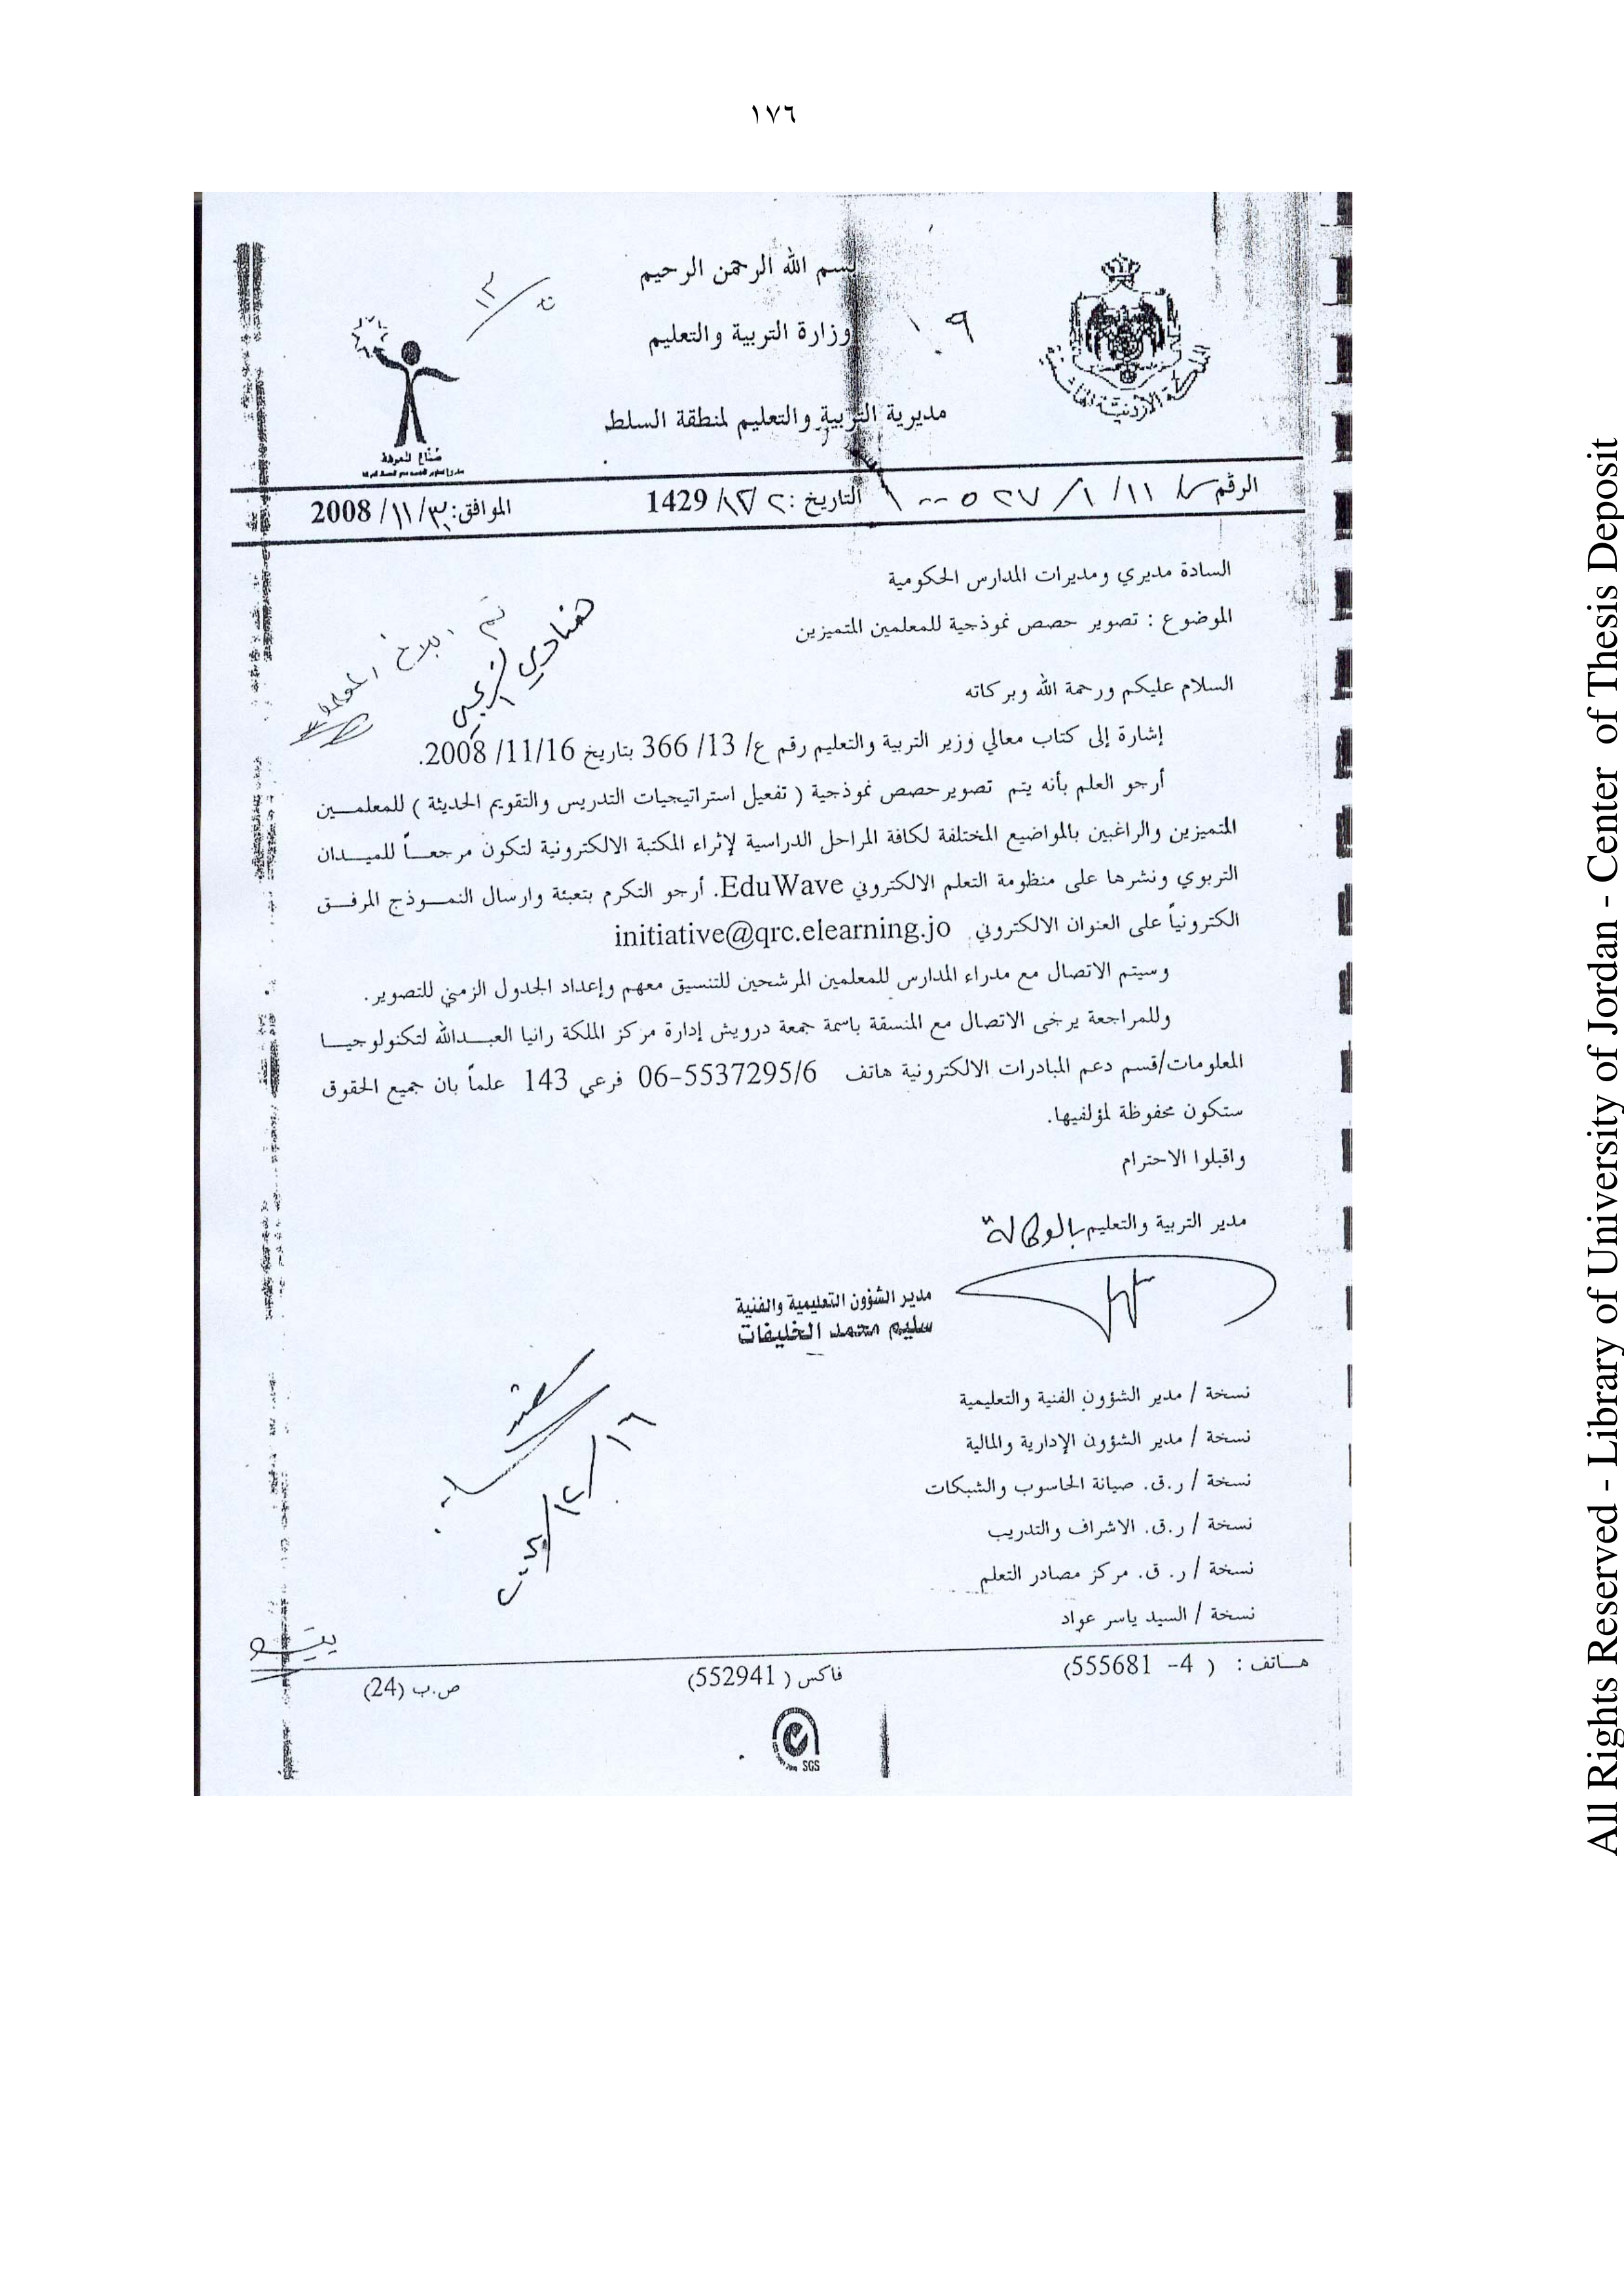 ١٧٦
بسم الله الرحمن الرحيم
وزارة التربية والتعليم
مديرية التربية والتعليم لمنطقة السلط
صناع المعرفة
التاريخ: ٢ /١٢/ 1429
الموافق: ٣٠/ ١١/ 2008
السادة مديري ومديرات المدارس الحكومية
الموضوع : تصوير حصص نموذجية للمعلمين المتميزين
تم ابلاغ
السلام عليكم ورحمة الله وبركاته
إشارة إلى كتاب معالي وزير التربية والتعليم رقم ع/ 13/ 366 بتاريخ 16/11/ 2008.
أرجو العلم بأنه يتم تصوير حصص نموذجية ( تفعيل استراتيجيات التدريس والتقويم الحديثة ) للمعلمـــين
المتميزين والراغبين بالمواضيع المختلفة لكافة المراحل الدراسية لإثراء المكتبة الالكترونية لتكون مرجعـــاً للميـــدان
التربوي ونشرها على منظومة التعلم الالكتروني EduWave. أرجو التكرم بتعبئة وارسال النمـــوذج المرفـــق
الكترونياً على العنوان الالكتروني initiative@qrc.elearning.jo
وسيتم الاتصال مع مدراء المدارس للمعلمين المرشحين للتنسيق معهم وإعداد الجدول الزمني للتصوير.
وللمراجعة يرخى الاتصال مع المنسقة باسمة جمعة درويش إدارة مركز الملكة رانيا العبـــدالله لتكنولوجيـــا
المعلومات/قسم دعم المبادرات الالكترونية هاتف 06-5537295/6 فرعي 143 علماً بان جميع الحقوق
ستكون محفوظة لمؤلفيها.
واقبلوا الاحترام
مدير التربية والتعليم بالوكالة
مدير الشؤون التعليمية والفنية
سليم محمد الخليفات
نسخة / مدير الشؤون الفنية والتعليمية
نسخة / مدير الشؤون الإدارية والمالية
نسخة / ر.ق. صيانة الحاسوب والشبكات
نسخة / ر.ق. الاشراف والتدريب
نسخة / ر. ق. مركز مصادر التعلم
نسخة / السيد ياسر عواد
هـــاتف : ( 4- 555681)
فاكس ( 552941)
ص.ب (24)
SGS
All Rights Reserved - Library of University of Jordan - Center of Thesis Deposit